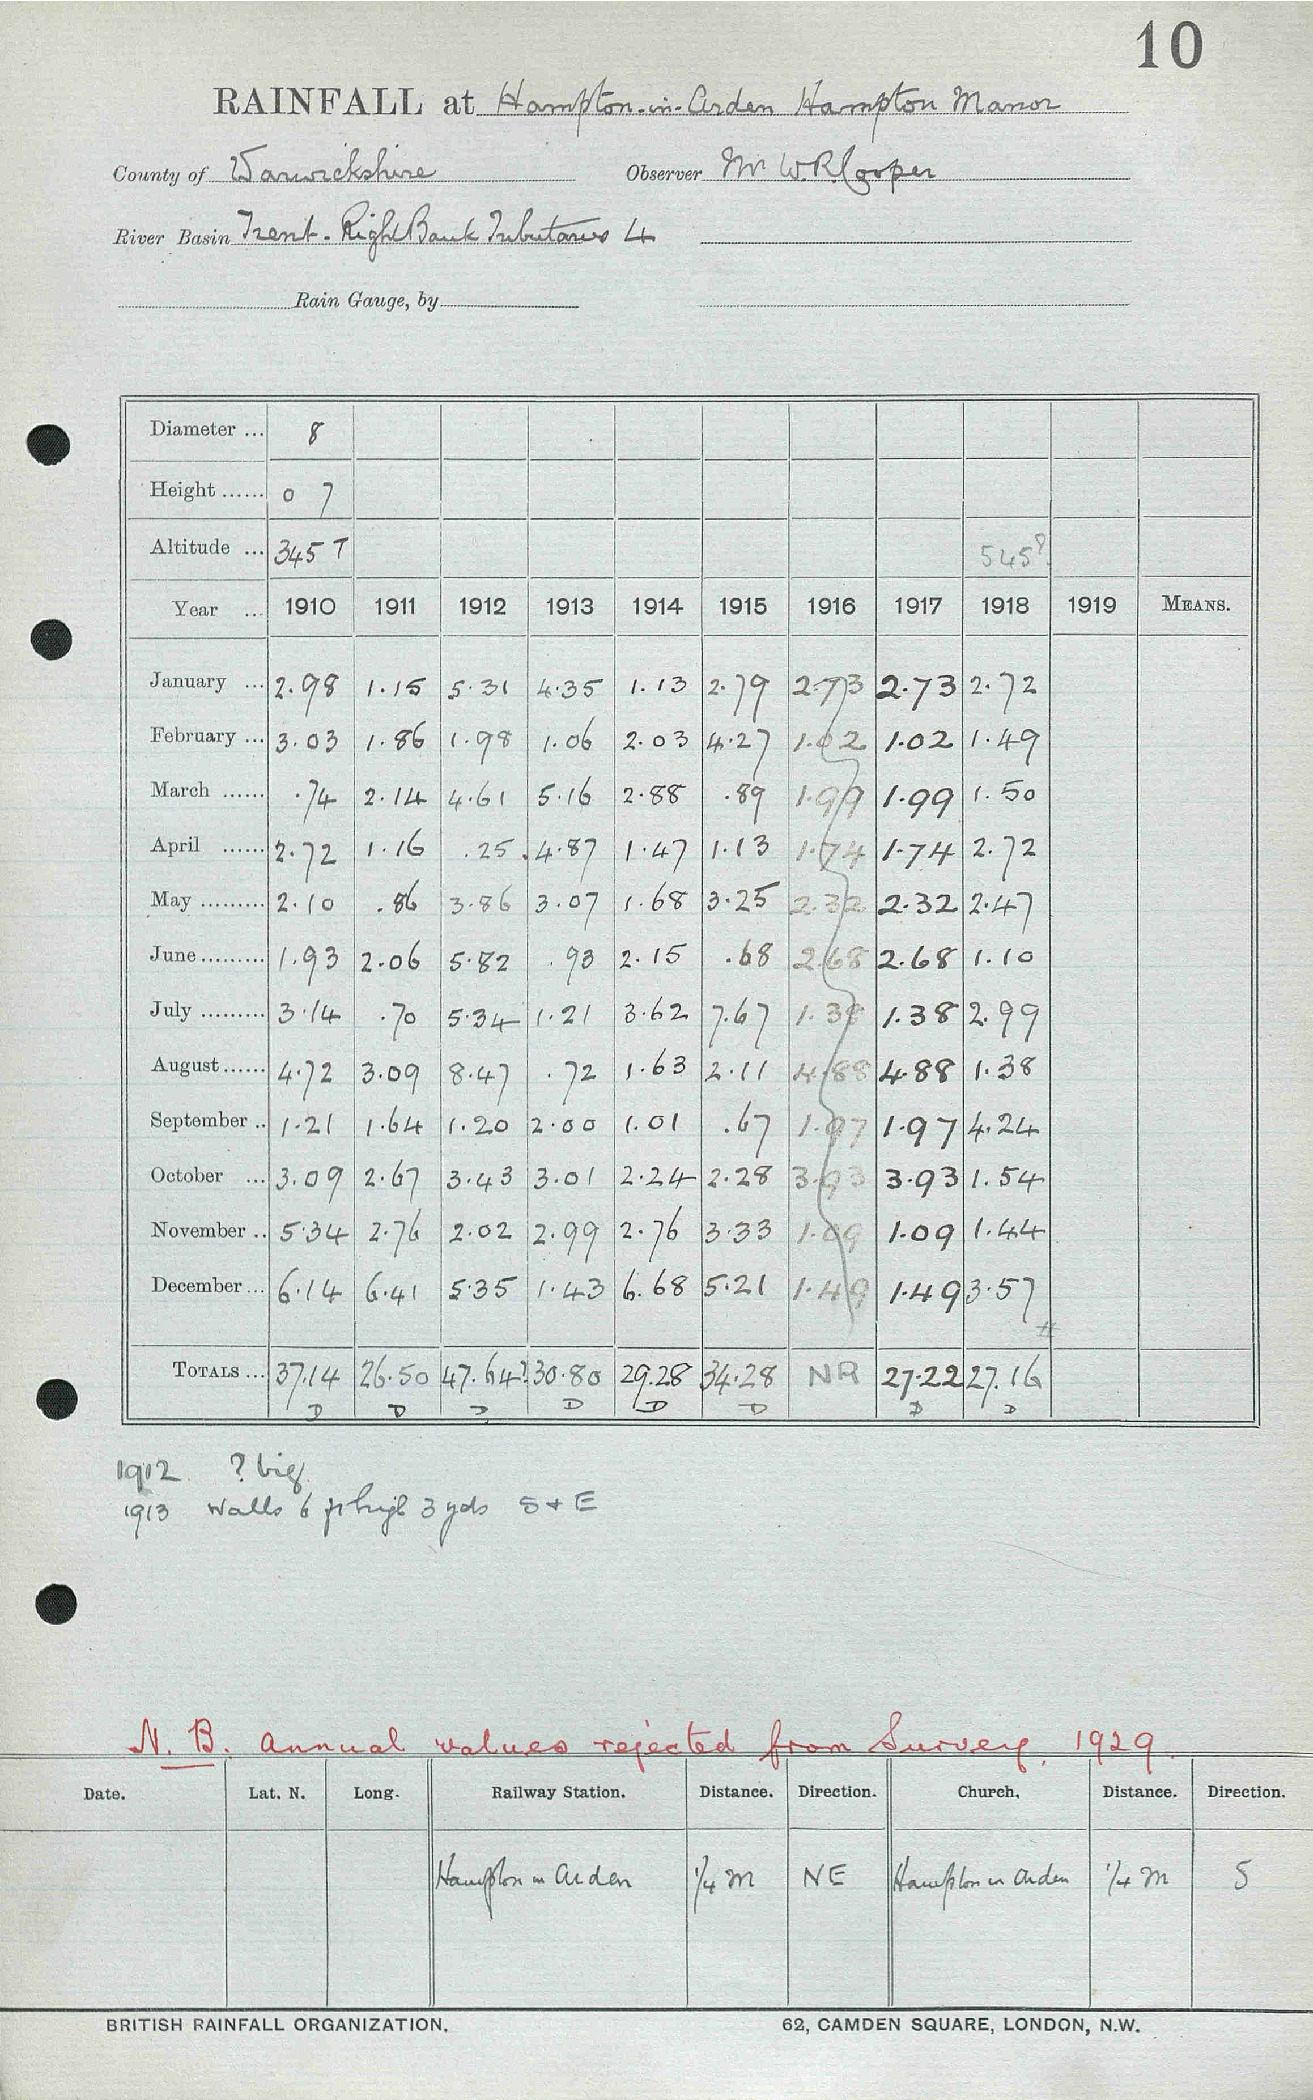 10
RAINFALL at Hampton-in-Arden Hampton Manor
County of Warwickshire Observer Mr W.R. Cooper
River Basin Trent. Right Bank Tributaries 4
Rain Gauge, by
Diameter ... 8
Height ...... 0 7
Altitude ... 345 T 545?
Year ... 1910 1911 1912 1913 1914 1915 1916 1917 1918 1919 MEANS.
January ... 2.98 1.15 5.31 4.35 1.13 2.79 2.73 2.73 2.72
February ... 3.03 1.86 1.98 1.06 2.03 4.27 1.02 1.02 1.49
March ...... .74 2.14 4.61 5.16 2.88 .89 1.99 1.99 1.50
April ...... 2.72 1.16 .25 4.87 1.47 1.13 1.74 1.74 2.72
May ......... 2.10 .86 3.86 3.07 1.68 3.25 2.32 2.32 2.47
June ......... 1.93 2.06 5.82 .93 2.15 .68 2.68 2.68 1.10
July ......... 3.14 .70 5.34 1.21 3.62 7.67 1.38 1.38 2.99
August ...... 4.72 3.09 8.47 .72 1.63 2.11 4.88 4.88 1.38
September .. 1.21 1.64 1.20 2.00 1.01 .67 1.97 1.97 4.24
October ... 3.09 2.67 3.43 3.01 2.24 2.28 3.93 3.93 1.54
November .. 5.34 2.76 2.02 2.99 2.76 3.33 1.09 1.09 1.44
December ... 6.14 6.41 5.35 1.43 6.68 5.21 1.49 1.49 3.57
TOTALS ... 37.14 26.50 47.64? 30.80 29.28 34.28 NR 27.22 27.16
D D D D D D D D
1912 ? big
1913 Walls 6 ft high 3 yds S + E
N.B. Annual values rejected from Survey, 1929.
Date. Lat. N. Long. Railway Station. Distance. Direction. Church. Distance. Direction.
Hampton in Arden 1/4 M NE Hampton in Arden 1/4 M S
BRITISH RAINFALL ORGANIZATION, 62, CAMDEN SQUARE, LONDON, N.W.